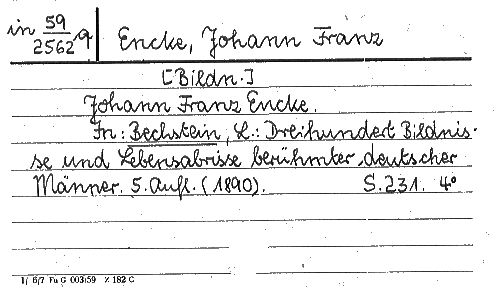 in 59/2562,9 Encke, Johann Franz
[Bildn.]
Johann Franz Encke.
In: Bechstein, L.: Dreihundert Bildnis-
se und Lebensabrisse berühmter, deutscher
Männer. 5. Aufl. (1890). S. 231. 4°
1/ 6/7 Fu G 003/59 Z 182 C